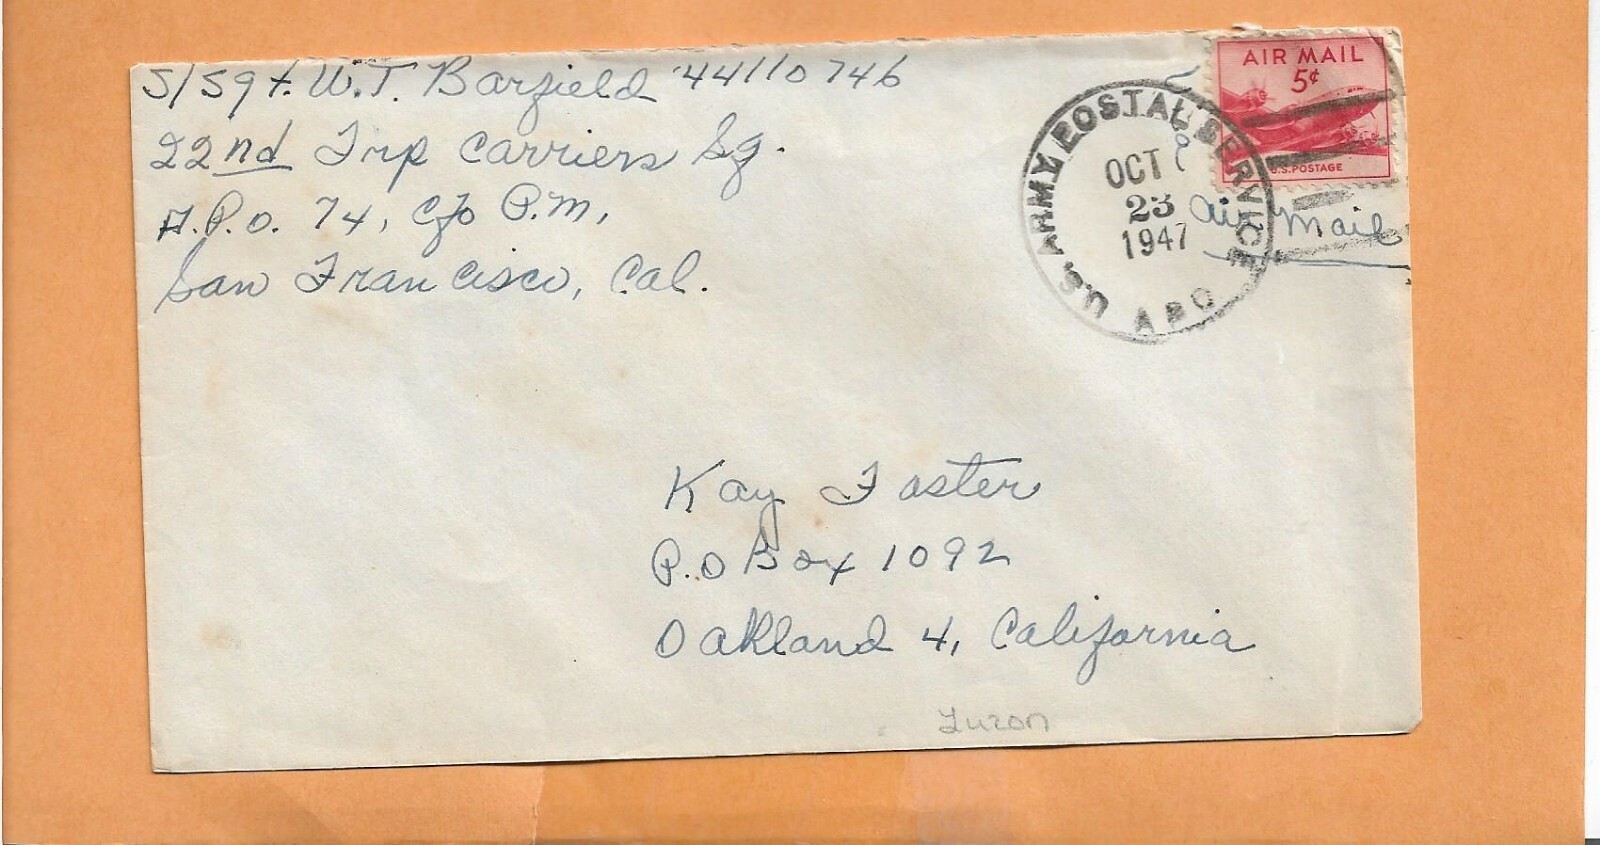 S/Sgt. W.T. Barfield 44110746
22nd Trp Carriers Sq.
A.P.O. 74, c/o P.M,
San Francisco, Cal.
AIR MAIL
5¢
U.S. POSTAGE
U.S. ARMY POSTAL SERVICE
APO
OCT
23
1947
Air Mail
Kay Foster
P.O Box 1092
Oakland 4, California
Luzon